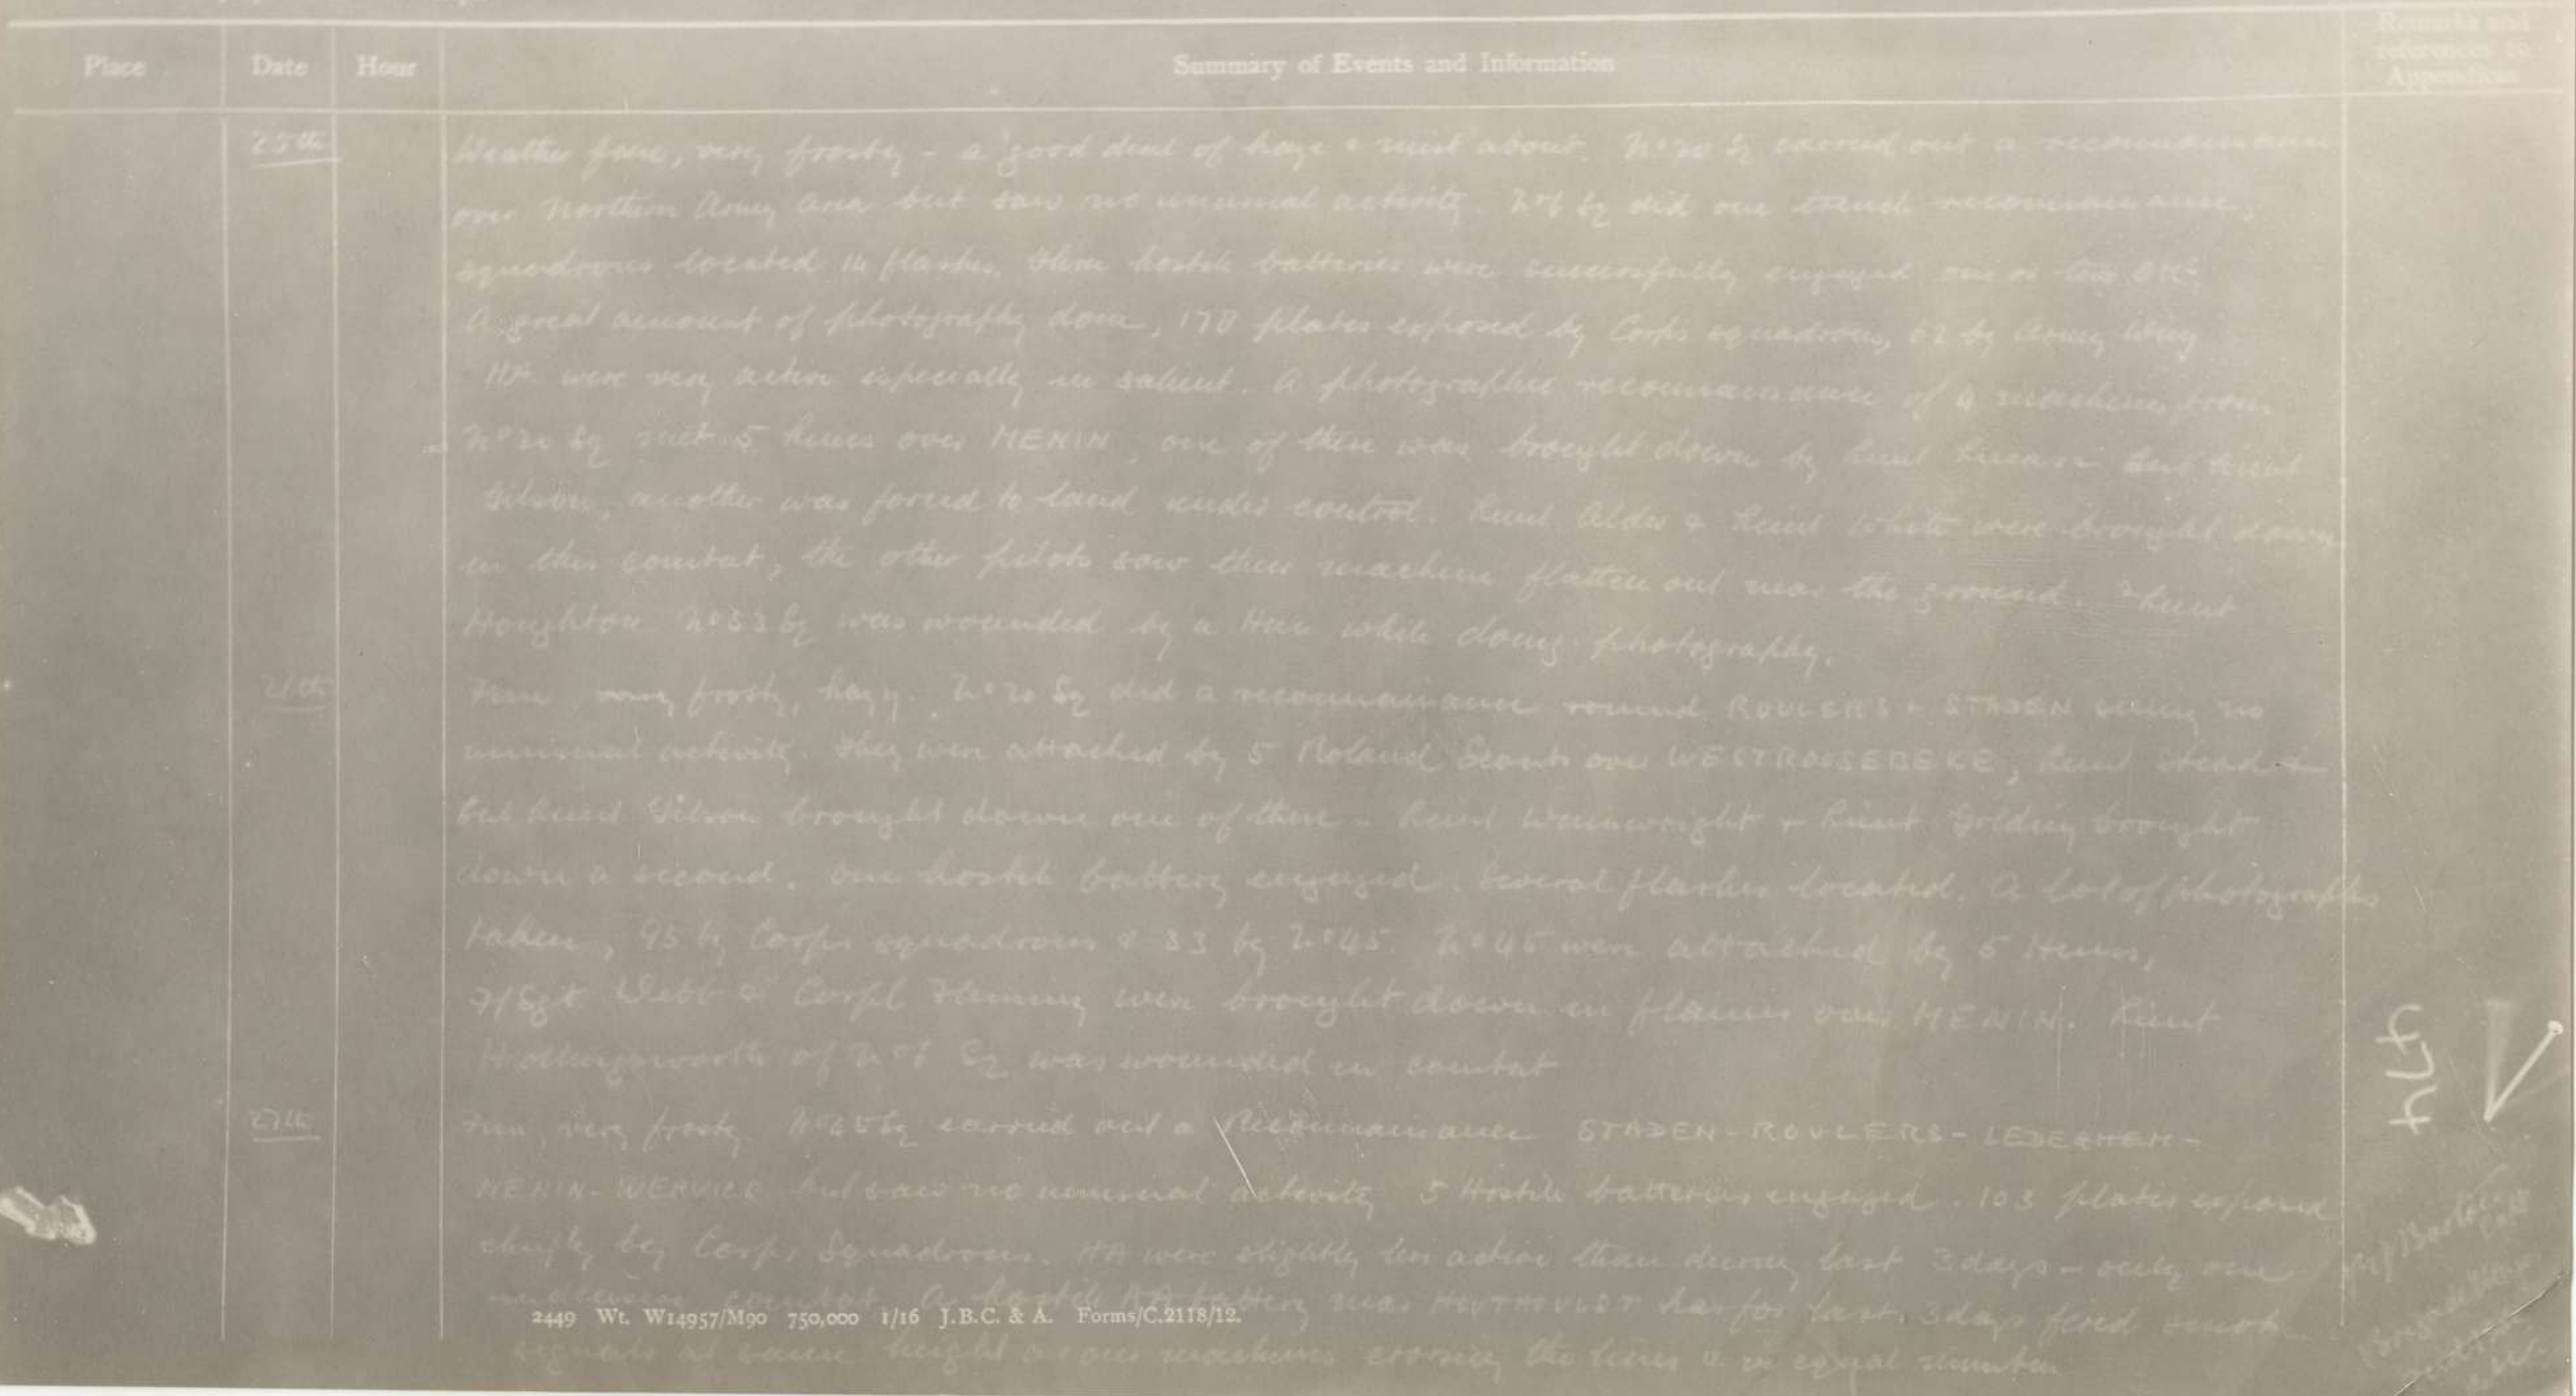 Remarks and
references to
Appendices
Place Date Hour Summary of Events and Information
25th Weather fine, very frosty - a good deal of haze & mist about. No 20 Sq carried out a reconnaissance
over Northern Army area but saw no unusual activity. No 6 Sq did one trench reconnaissance,
squadrons located 14 flashes. Three hostile batteries were successfully engaged one or two OKs.
A great amount of photography done, 178 plates exposed by Corps squadrons, 62 by Army Wing
HA were very active especially in salient. A photographic reconnaissance of 4 machines from
No 20 Sq met 5 huns over MENIN, one of these was brought down by Lieut Lucas & 2nd Lieut
Gilson, another was forced to land under control. Lieut Alder & Lieut White were brought down
in this combat, the other pilots saw their machine flatten out near the ground. Lieut
Houghton No 53 Sq was wounded by a Hun while doing photography.
26th Fine very frosty, hazy. No 20 Sq did a reconnaissance round ROULERS & STADEN seeing no
unusual activity. They were attacked by 5 Roland Scouts over WESTROOSEBEKE, Lieut Stead &
2nd Lieut Gilson brought down one of these - Lieut Wainwright & Lieut Golding brought
down a second. One hostile battery engaged. Several flashes located. A lot of photographs
taken, 95 by Corps squadrons & 33 by No 45. No 45 were attacked by 5 Huns,
F/Sgt Webb & Corpl Fleming were brought down in flames over MENIN. Lieut
Hollingsworth of No 6 Sq was wounded in combat
27th Fine, very frosty. No 45 Sq carried out a Reconnaissance STADEN - ROULERS - LEDEGHEM -
MENIN - WERVICQ but saw no unusual activity 5 Hostile batteries engaged. 103 plates exposed
chiefly by Corps Squadrons. HA were slightly less active than during last 3 days - only one
combat. A hostile AA battery near HOUTHOULST has for last 3 days fired smoke
2449 Wt. W14957/M90 750,000 1/16 J.B.C. & A. Forms/C.2118/12.
signals at same height as our machines crossing the lines & in equal number.